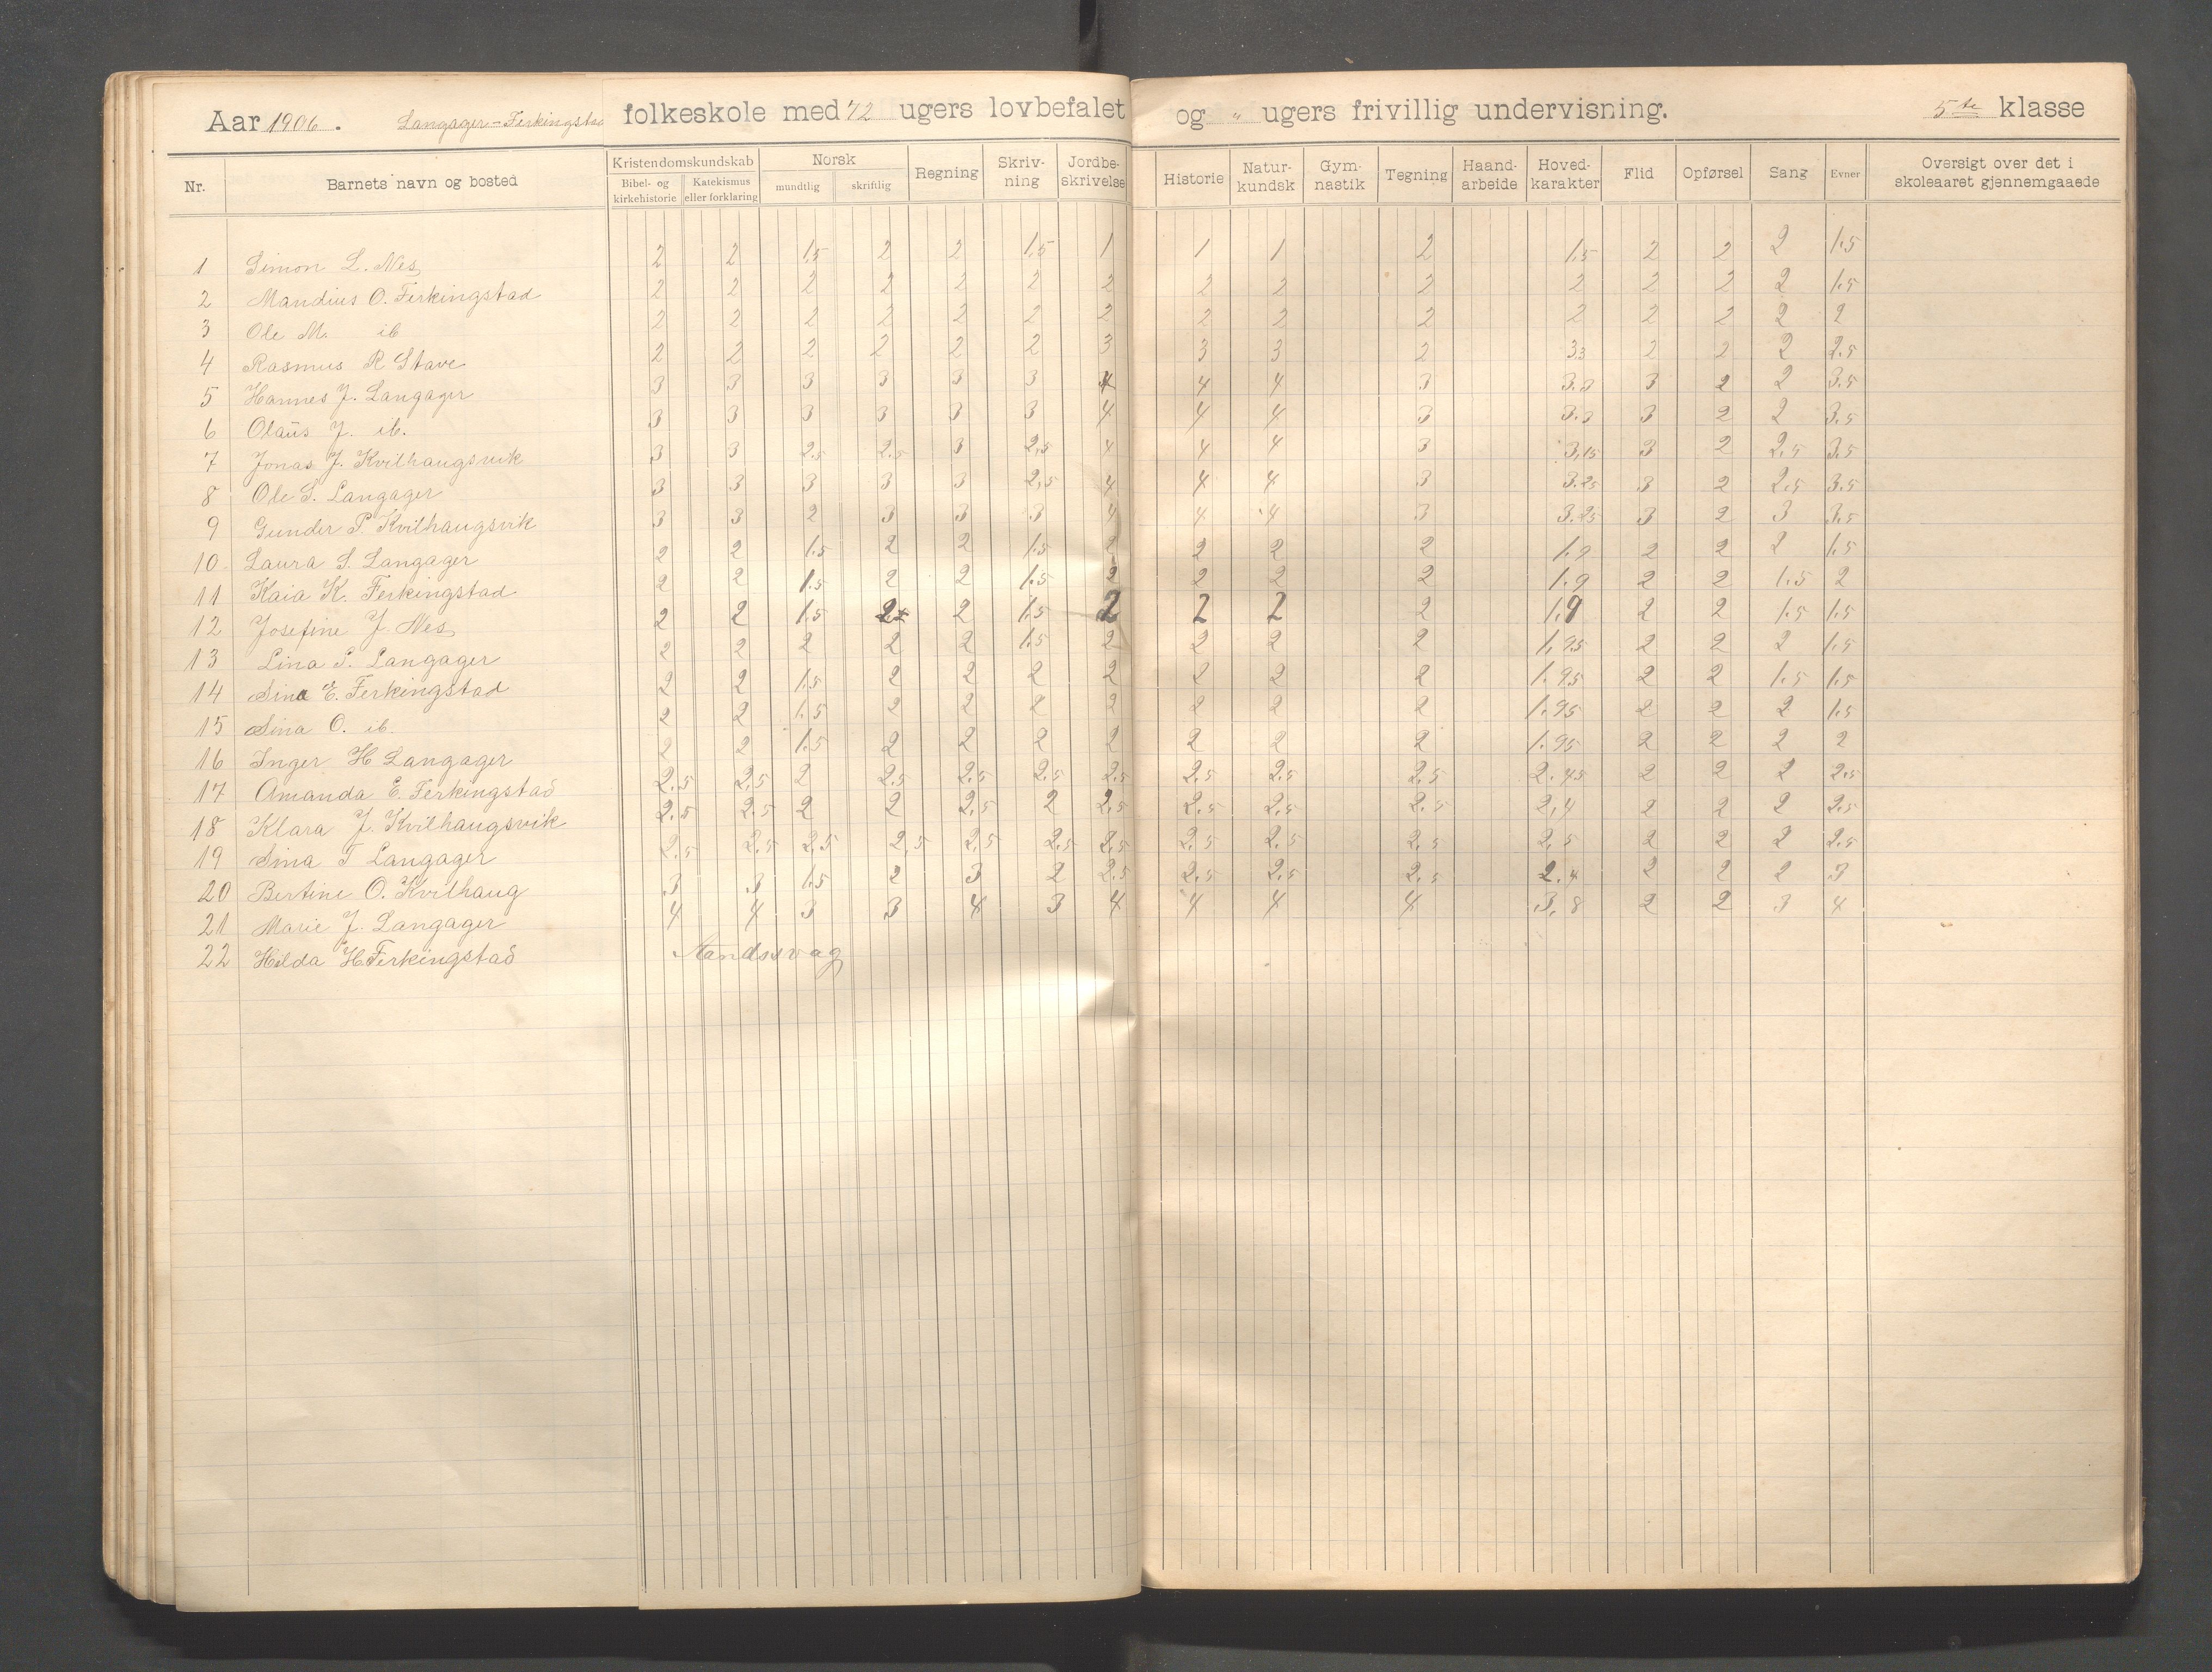 Aar 1906. Langager-Ferkingstad folkeskole med 42 ugers lovbefalet og " ugers frivillig undervisning. 5te klasse
Nr. Barnets navn og bosted Kristendomskundskab Bibel- og kirkehistorie Katekismus eller forklaring Norsk mundtlig skriftlig Regning Skriv-ning Jordbe-skrivelse Historie Natur-kundsk Gym-nastik Tegning Haand-arbeide Hoved-karakter Flid Opførsel Sang Evner Oversigt over det i skoleaaret gjennemgaaede
1 Simon L. Nes 2 2 1.5 2 2 1.5 1 1 1 2 1.5 2 2 2 1.5
2 Mandius O. Ferkingstad 2 2 2 2 2 2 2 2 2 2 2 2 2 2 1.5
3 Ole M. ib 2 2 2 2 2 2 2 2 2 2 2 2 2 2 2
4 Rasmus R Stave 2 2 2 2 2 2 3 3 3 2 3.3 2 2 2 2.5
5 Hannes J. Langager 3 3 3 3 3 3 4 4 4 3 3.3 3 2 2 3.5
6 Olaus J. ib. 3 3 3 3 3 3 4 4 4 3 3.3 3 2 2 3.5
7 Jonas J. Kvilhaugsvik 3 3 2.5 2.5 3 2,5 4 4 4 3 3,15 3 2 2,5 3.5
8 Ole S. Langager 3 3 3 3 3 2,5 4 4 4 3 3.25 3 2 2.5 3.5
9 Gunder P. Kvilhaugsvik 3 3 2 3 3 3 4 4 4 3 3.25 3 2 3 3.5
10 Laura S. Langager 2 2 1.5 2 2 1.5 2 2 2 2 1.9 2 2 2 1.5
11 Kaia K. Ferkingstad 2 2 1.5 2 2 1.5 2 2 2 2 1.9 2 2 1.5 2
12 Josefine J. Nes 2 2 1.5 2 2 1.5 2 2 2 2 1.9 2 2 1.5 1.5
13 Lina S. Langager 2 2 2 2 2 1.5 2 2 2 2 1.95 2 2 2 1.5
14 Sina E. Ferkingstad 2 2 1.5 2 2 2 2 2 2 2 1.95 2 2 1.5 1.5
15 Sina O. ib. 2 2 1.5 2 2 2 2 2 2 2 1.95 2 2 2 1.5
16 Inger H Langager 2 2 1.5 2 2 2 2 2 2 2 1.95 2 2 2 2
17 Amanda E. Ferkingstad 2.5 2.5 2 2.5 2.5 2.5 2.5 2.5 2.5 2.5 2.45 2 2 2 2.5
18 Klara J. Kvilhaugsvik 2.5 2.5 2 2 2.5 2 2.5 2.5 2.5 2.5 2,4 2 2 2 2.5
19 Sina T Langager 2.5 2.5 2.5 2.5 2.5 2.5 2.5 2.5 2.5 2.5 2,5 2 2 2 2.5
20 Bertine O. Kvilhaug 3 3 1.5 2 3 2 2.5 2.5 2.5 2.5 2.4 2 2 2 3
21 Marie J. Langager 4 4 3 3 4 3 4 4 4 4 3,8 2 2 3 4
22 Hilda H. Ferkingstad Aandssvag